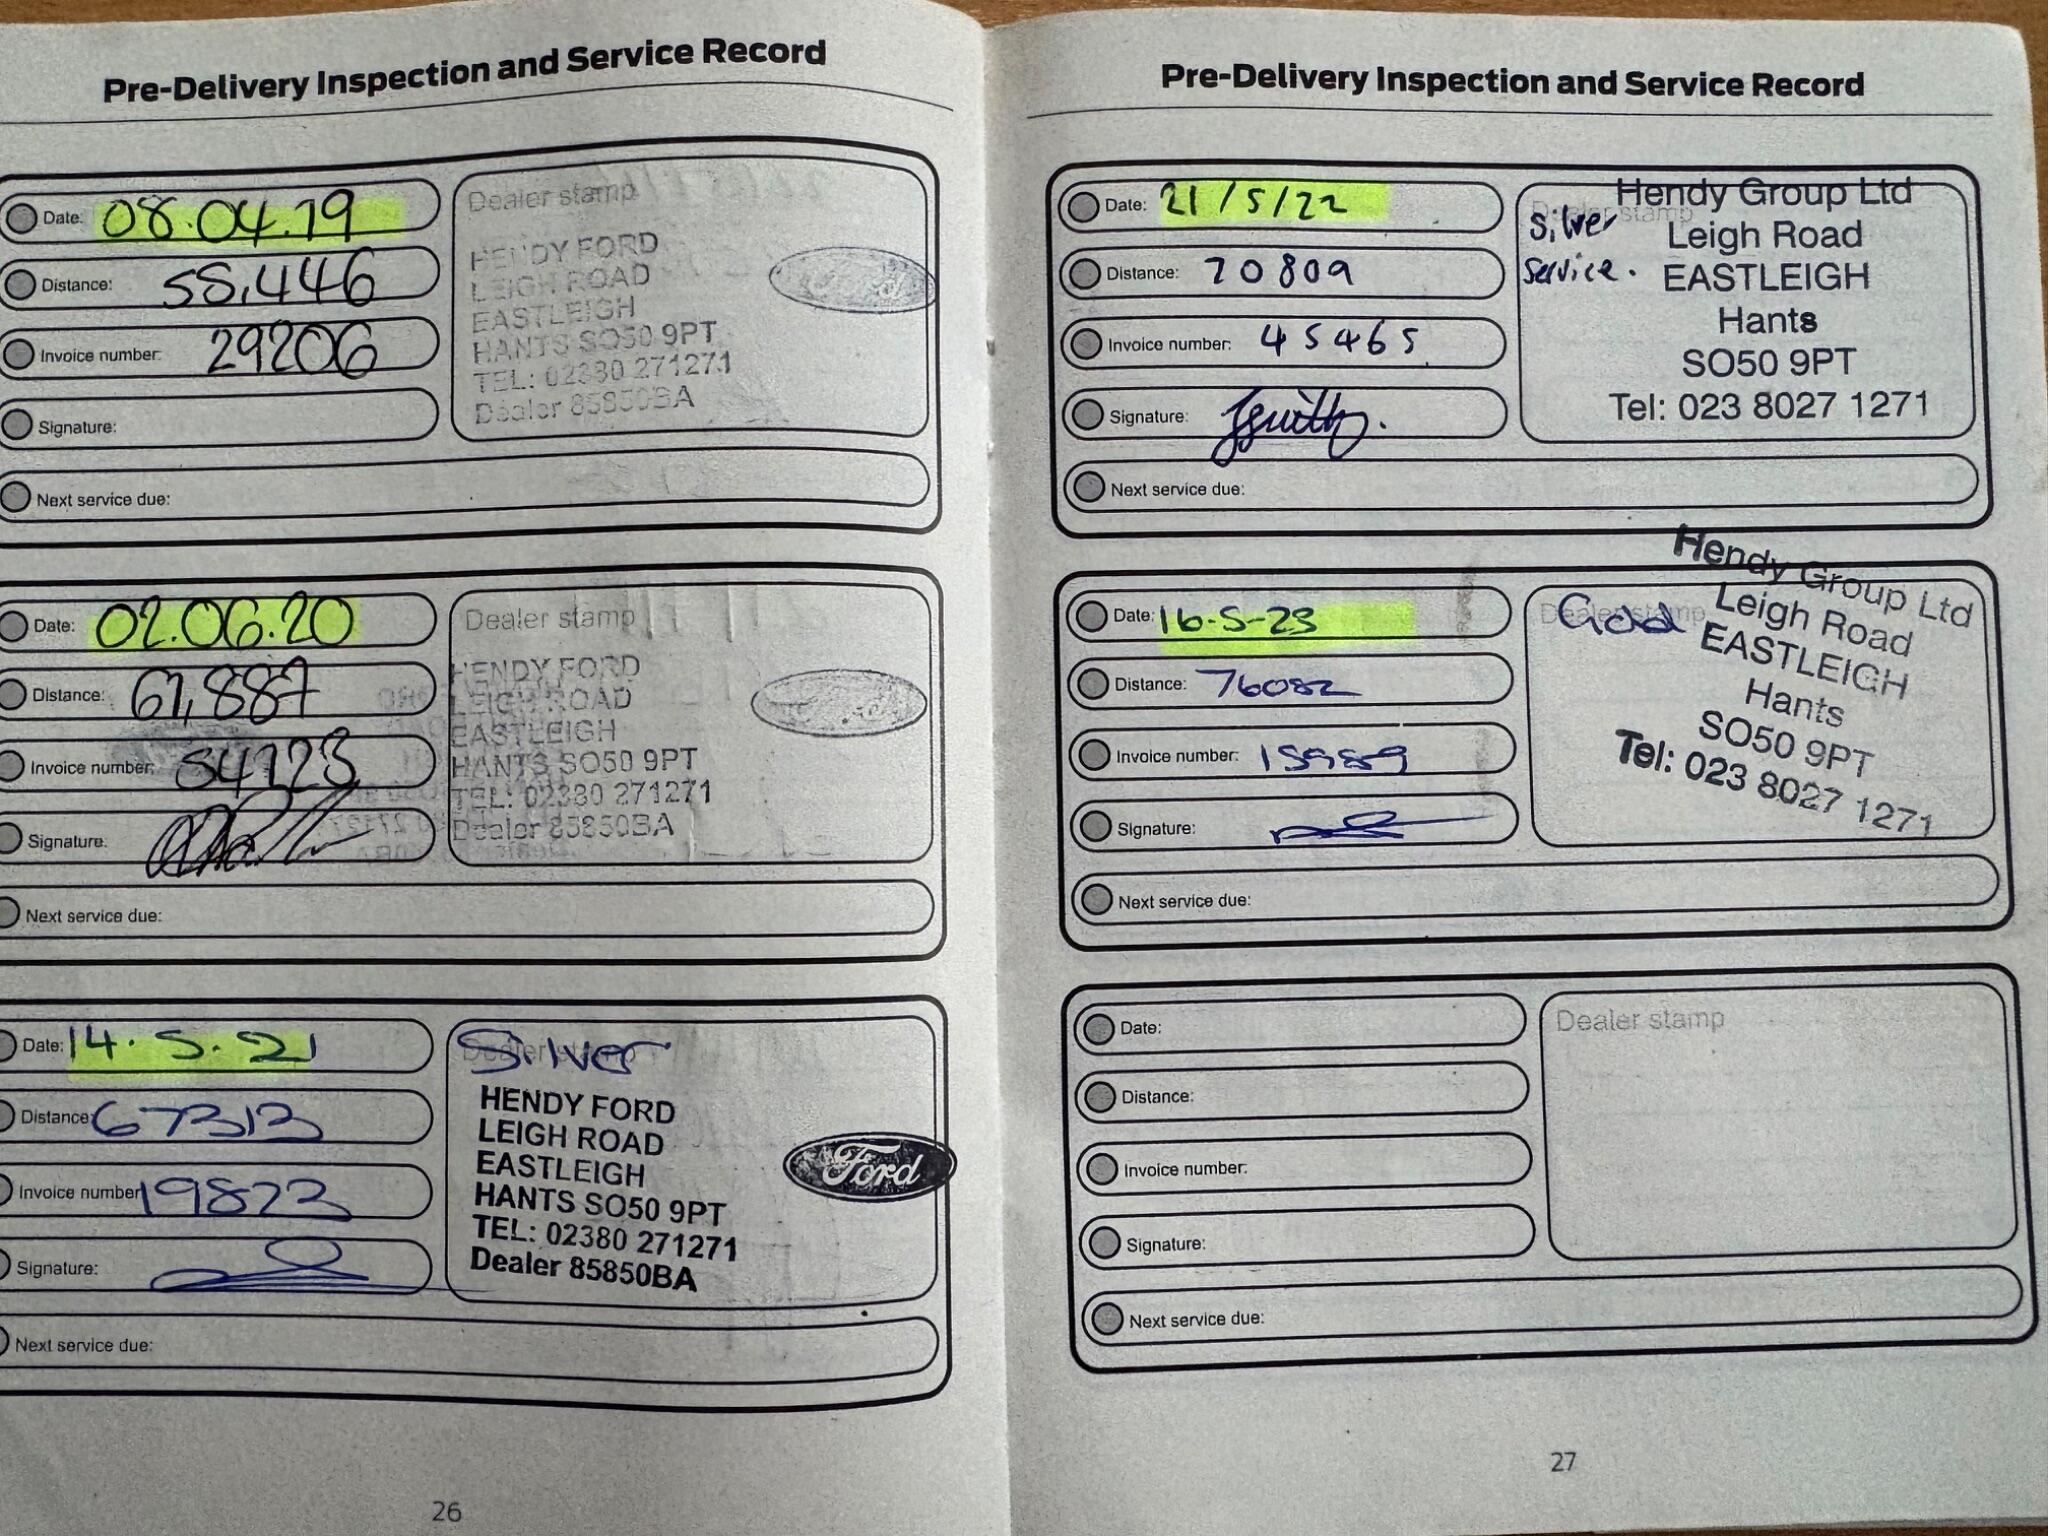 Pre-Delivery Inspection and Service Record
Date: 08.04.19
Distance: 55,446
Invoice number: 29206
Signature:
Next service due:
Dealer stamp
HENDY FORD
LEIGH ROAD
EASTLEIGH
HANTS SO50 9PT
TEL: 02380 271271
Dealer 85850BA
Ford
Date: 02.06.20
Distance: 61,887
Invoice number: 54123
Signature:
Next service due:
Dealer stamp
HENDY FORD
LEIGH ROAD
EASTLEIGH
HANTS SO50 9PT
TEL: 02380 271271
Dealer 85850BA
Date: 14.5.21
Distance: 67313
Invoice number: 19823
Signature:
Next service due:
Dealer stamp
Silver
HENDY FORD
LEIGH ROAD
EASTLEIGH
HANTS SO50 9PT
TEL: 02380 271271
Dealer 85850BA
Ford
26
Pre-Delivery Inspection and Service Record
Date: 21/5/22
Distance: 70809
Invoice number: 45465
Signature:
Next service due:
Dealer stamp
Silver
Service.
Hendy Group Ltd
Leigh Road
EASTLEIGH
Hants
SO50 9PT
Tel: 023 8027 1271
Date: 16-5-23
Distance: 76082
Invoice number: 15989
Signature:
Next service due:
Dealer stamp
Gold
Hendy Group Ltd
Leigh Road
EASTLEIGH
Hants
SO50 9PT
Tel: 023 8027 1271
Date:
Distance:
Invoice number:
Signature:
Next service due:
Dealer stamp
27